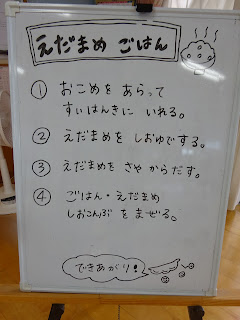 えだまめ ごはん
① おこめを あらって
すいはんきに いれる。
② えだまめを しおゆでする。
③ えだまめを さやからだす。
④ ごはん・えだまめ
しおこんぶ を まぜる。
できあがり!